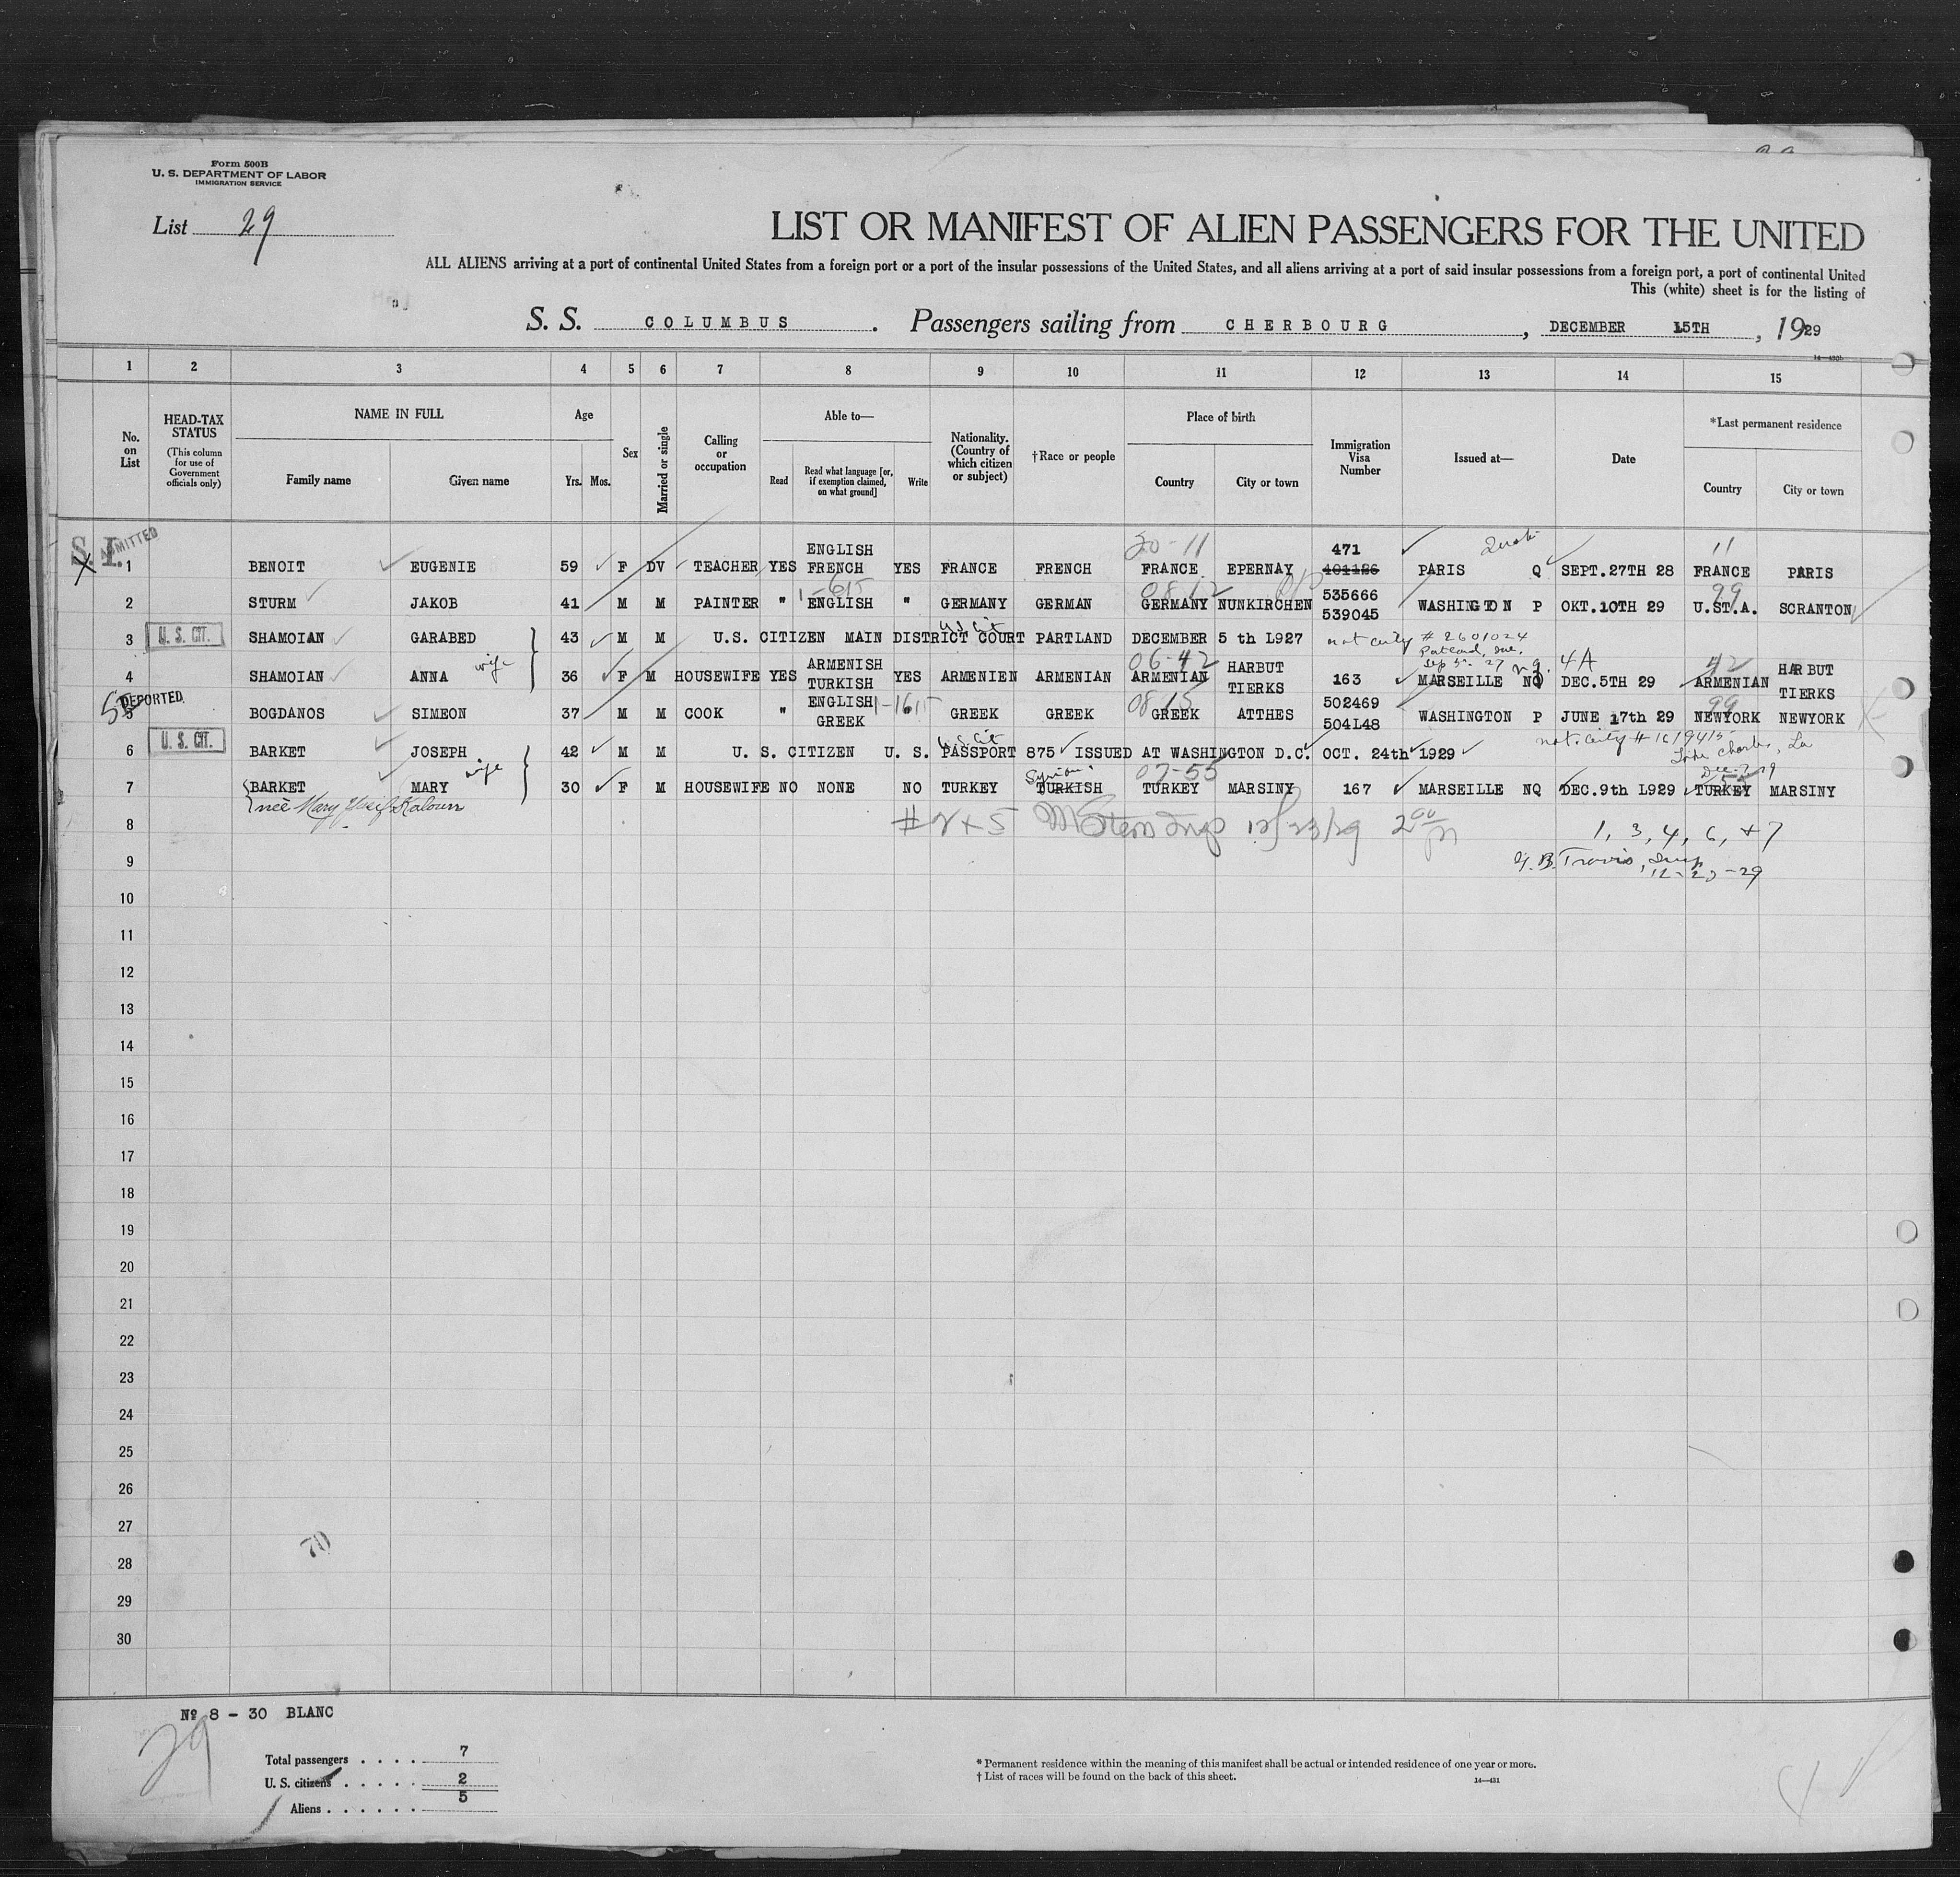 Form 500B
U. S. DEPARTMENT OF LABOR
IMMIGRATION SERVICE
List 29
LIST OR MANIFEST OF ALIEN PASSENGERS FOR THE UNITED
ALL ALIENS arriving at a port of continental United States from a foreign port or a port of the insular possessions of the United States, and all aliens arriving at a port of said insular possessions from a foreign port, a port of continental United
This (white) sheet is for the listing of
S. S. COLUMBUS. Passengers sailing from CHERBOURG, DECEMBER 15TH, 1929
1 2 3 4 5 6 7 8 9 10 11 12 13 14 15
No. on List
HEAD-TAX STATUS
(This column for use of Government officials only)
NAME IN FULL
Family name Given name
Age
Yrs. Mos.
Sex
Married or single
Calling or occupation
Able to—
Read Read what language [or, if exemption claimed, on what ground] Write
Nationality. (Country of which citizen or subject)
†Race or people
Place of birth
Country City or town
Immigration Visa Number
Issued at—
Date
*Last permanent residence
Country City or town
S. I. ADMITTED
20-11 11
1 BENOIT EUGENIE 59 F DV TEACHER YES ENGLISH FRENCH YES FRANCE FRENCH FRANCE EPERNAY 471 401126 PARIS Q SEPT.27TH 28 FRANCE PARIS
2 STURM JAKOB 41 M M PAINTER " ENGLISH " GERMANY GERMAN GERMANY NUNKIRCHEN 535666 539045 WASHINGTON P OKT.10TH 29 U.ST.A. SCRANTON
U. S. CIT.
3 SHAMOIAN GARABED 43 M M U.S. CITIZEN MAIN DISTRICT COURT PARTLAND DECEMBER 5 th L927 # 2601024
4 SHAMOIAN ANNA wife 36 F M HOUSEWIFE YES ARMENISH TURKISH YES ARMENIEN ARMENIAN 06-42 ARMENIAN HARBUT TIERKS 163 MARSEILLE NQ 4A DEC.5TH 29 42 ARMENIAN HARBUT TIERKS
DEPORTED
5 BOGDANOS SIMEON 37 M M COOK " ENGLISH GREEK " GREEK GREEK GREEK ATTHES 502469 504L48 WASHINGTON P JUNE 17th 29 99 NEWYORK NEWYORK
U. S. CIT.
6 BARKET JOSEPH 42 M M U. S. CITIZEN U. S. PASSPORT 875 ISSUED AT WASHINGTON D.C. OCT. 24th 1929
7 BARKET MARY wife 30 F M HOUSEWIFE NO NONE NO TURKEY Syrian TURKISH 07-55 TURKEY MARSINY 167 MARSEILLE NQ DEC.9th L929 TURKEY MARSINY
née Mary
8 1, 3, 4, 6, + 7
9 Travis, Insp
10
11
12
13
14
15
16
17
18
19
20
21
22
23
24
25
26
27
28
29
30
70
Nº 8 - 30 BLANC
29
Total passengers . . . . 7
U. S. citizens . . . . . 2
Aliens . . . . . . 5
* Permanent residence within the meaning of this manifest shall be actual or intended residence of one year or more.
† List of races will be found on the back of this sheet.
14—431